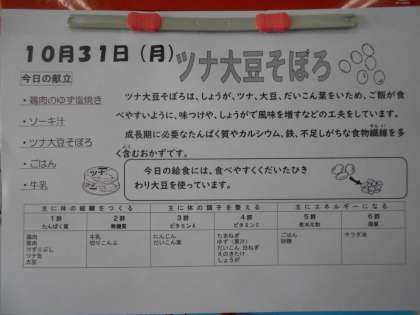 10月31日（月）
ツナ大豆そぼろ
今日の献立
・鶏肉のゆず塩焼き
・ソーキ汁
・ツナ大豆そぼろ
・ごはん
・牛乳
ツナ大豆そぼろは、しょうが、ツナ、大豆、だいこん葉をいため、ご飯が食
べやすいように、味つけや、しょうがで風味を増すなどの工夫をしています。
成長期に必要なたんぱく質やカルシウム、鉄、不足しがちな食物繊維を多
く含むおかずです。
今日の給食には、食べやすくくだいたひき
わり大豆を使っています。
主に体の組織をつくる 主に体の調子を整える 主にエネルギーになる
1群 2群 3群 4群 5群 6群
たんぱく質 無機質 ビタミンA ビタミンC 炭水化物 脂質
鶏肉 牛乳 にんじん たまねぎ ごはん サラダ油
豚肉 切りこんぶ だいこん葉 ゆず（果汁） 砂糖
だいこん 白ねぎ
ツナ缶 えのきたけ
大豆 しょうが